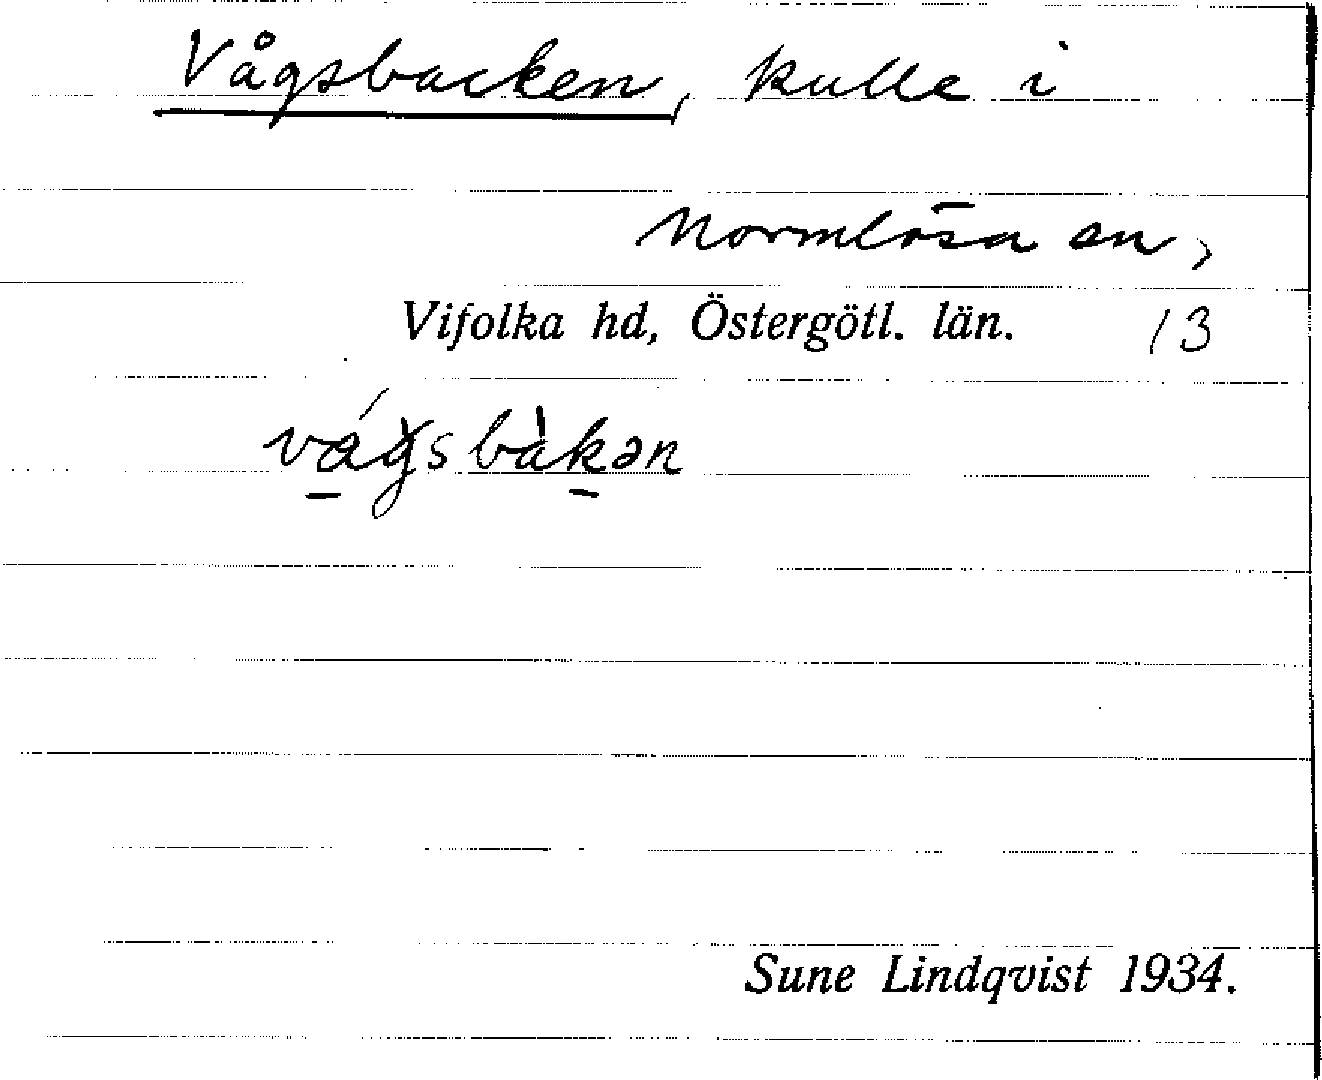 Vågsbacken, kulle i
Normlösa sn,
Vifolka hd, Östergötl. län. 13
vágsbàkən
Sune Lindqvist 1934.